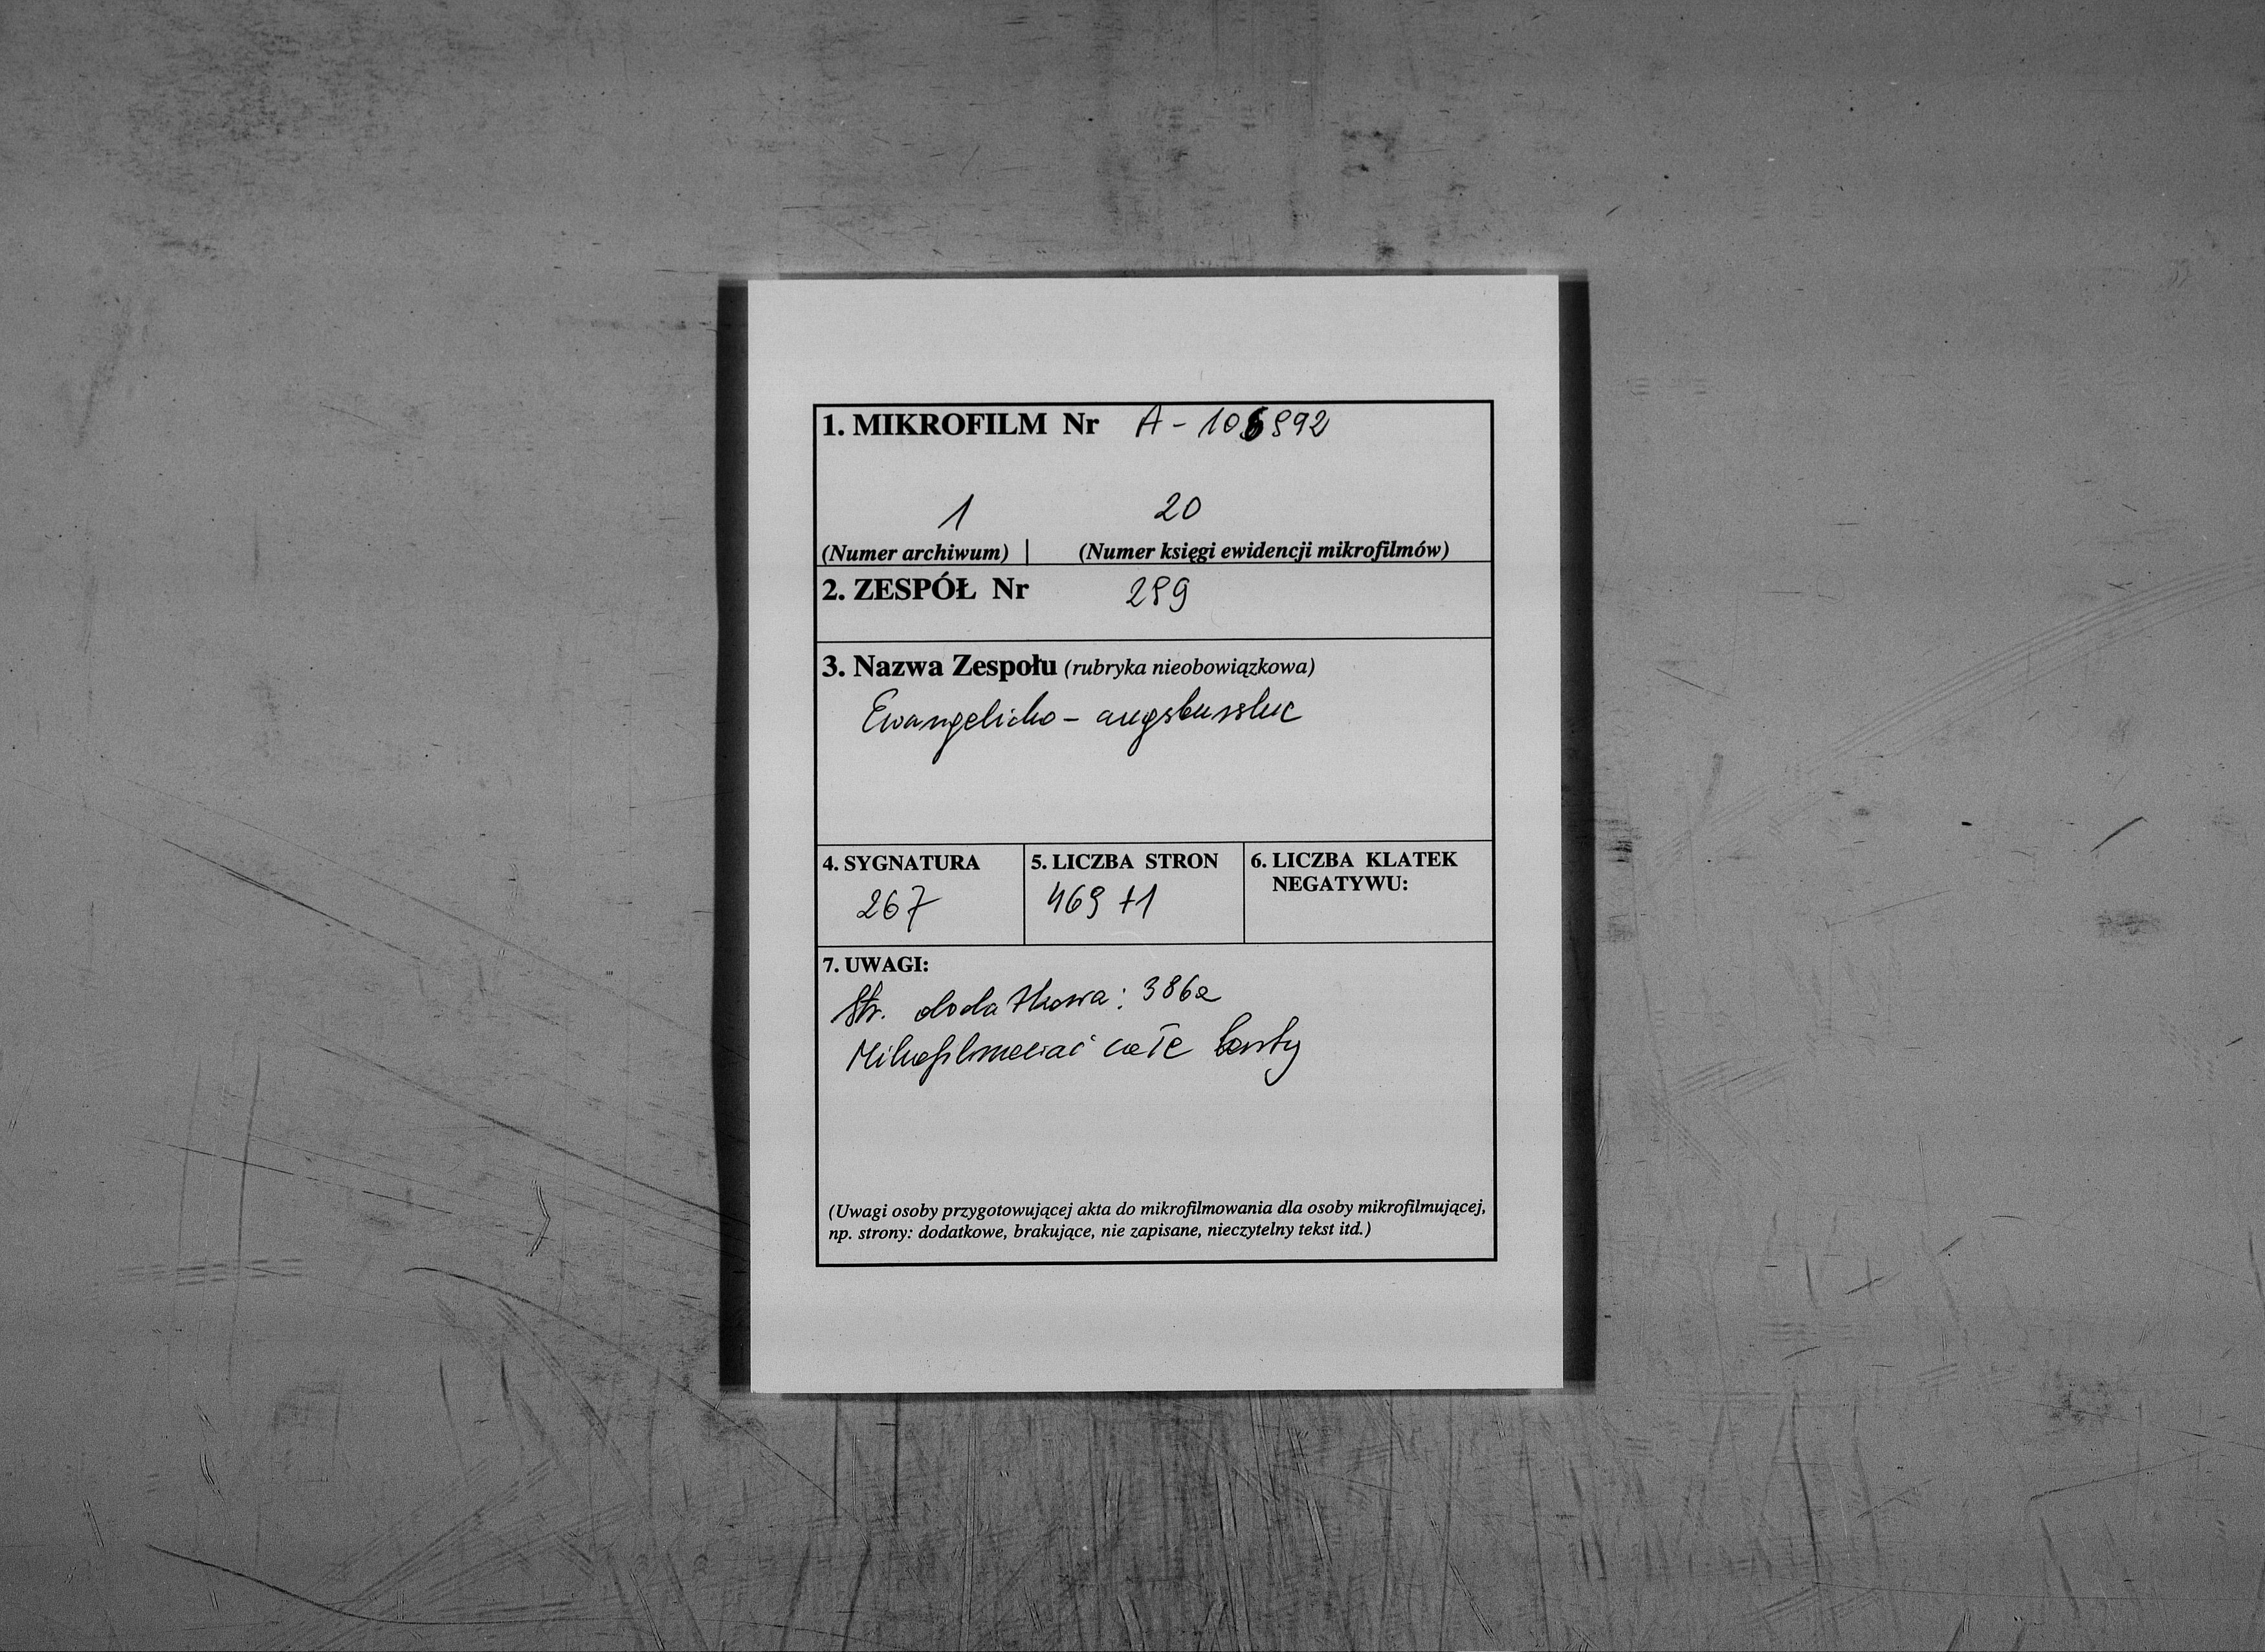 1. MIKROFILM Nr A - 106892
1 20
(Numer archiwum) | (Numer księgi ewidencji mikrofilmów)
2. ZESPÓŁ Nr 289
3. Nazwa Zespołu (rubryka nieobowiązkowa)
Ewangelicko - augsburskie
4. SYGNATURA 5. LICZBA STRON 6. LICZBA KLATEK
NEGATYWU:
267 469 +1
7. UWAGI:
Str. dodatkowa: 386a
Mikrofilmować całe karty
(Uwagi osoby przygotowującej akta do mikrofilmowania dla osoby mikrofilmującej,
np. strony: dodatkowe, brakujące, nie zapisane, nieczytelny tekst itd.)